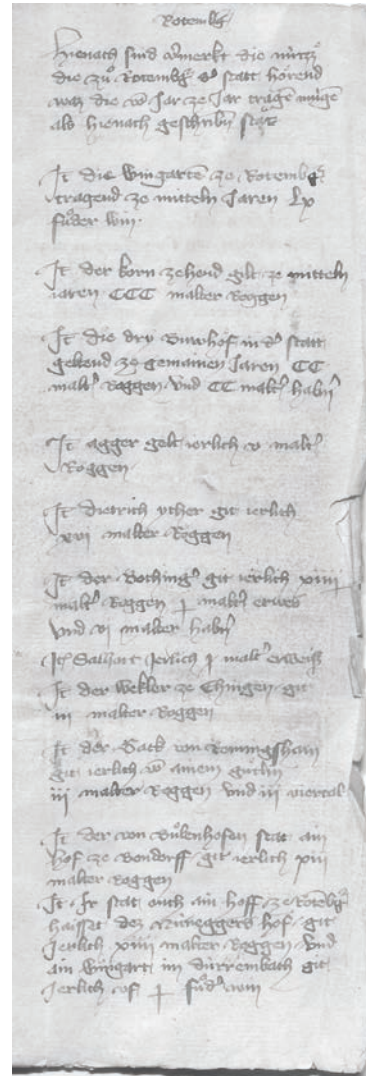 Rotembg
Hienach sind vermerkt die nütz
die zů Rotembg der statt hörend
waz die von Jar ze Jar tragen mügen
als hienach geschriben stat
It die wingarten ze Rotembg
tragend ze mitteln Jaren Lx
fůder win
It der korn zehend gilt ze mitteln
iaren CCC malter Roggen
It die dry Buwhof in der statt
geltend ze gemainen Jaren CC
malt Roggen vnd CC malt habn
It agger gelt ierlich v malt
Roggen
It dietrich vther git ierlich
xvi malter Roggen
It der Bothing git ierlich xiiii
malt Roggen j malt erwes
vnd vi malter habn
It Salhart Jerlich j malt erweiss
It der wekler ze Ehingen git
iii malter Roggen
It der Sack von Remmingshain
git ierlich von ainem gůtlin
iii malter Roggen vnd iii viertal
It der von Bůbenhofen stat ain
hof ze Bondorff git ierlich xiii
malter Roggen
It Ir stat ouch ain hoff ze Rotebg
haisset dez Nüneggers hof git
Jerlich xiiii malter Roggen vnd
ain wingart im dürrembach git
Jerlich vf j fůd win